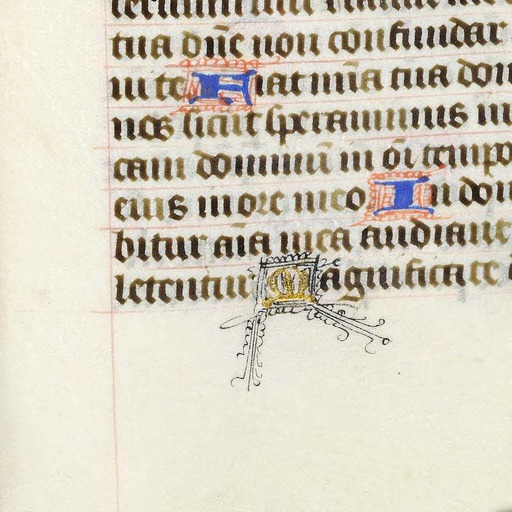 tua dñe non confundar
in te Fiat mĩa tua dom
nos sicut sperauimus in
cam dominũ in õi tempo
eius in ore meo In dom
bitur aĩa mea audiant
letentur Magnificate